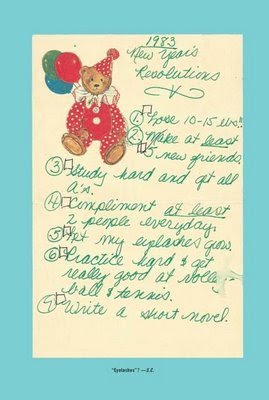 1983
New Year's
Resolutions
① Lose 10-15 lbs!!
② Make at least
5 new friends.
③ Study hard and get all
A's.
④ Compliment at least
2 people everyday.
⑤ Let my eylashes grow.
⑥ Practice hard & get
really good at volley-
ball & tennis.
⑦ Write a short novel.
"Eyelashes"? —S.C.